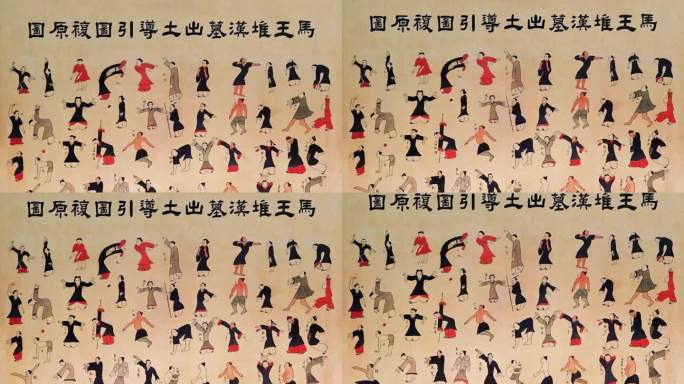 馬王堆漢墓出土導引圖複原圖
馬王堆漢墓出土導引圖複原圖
馬王堆漢墓出土導引圖複原圖
馬王堆漢墓出土導引圖複原圖